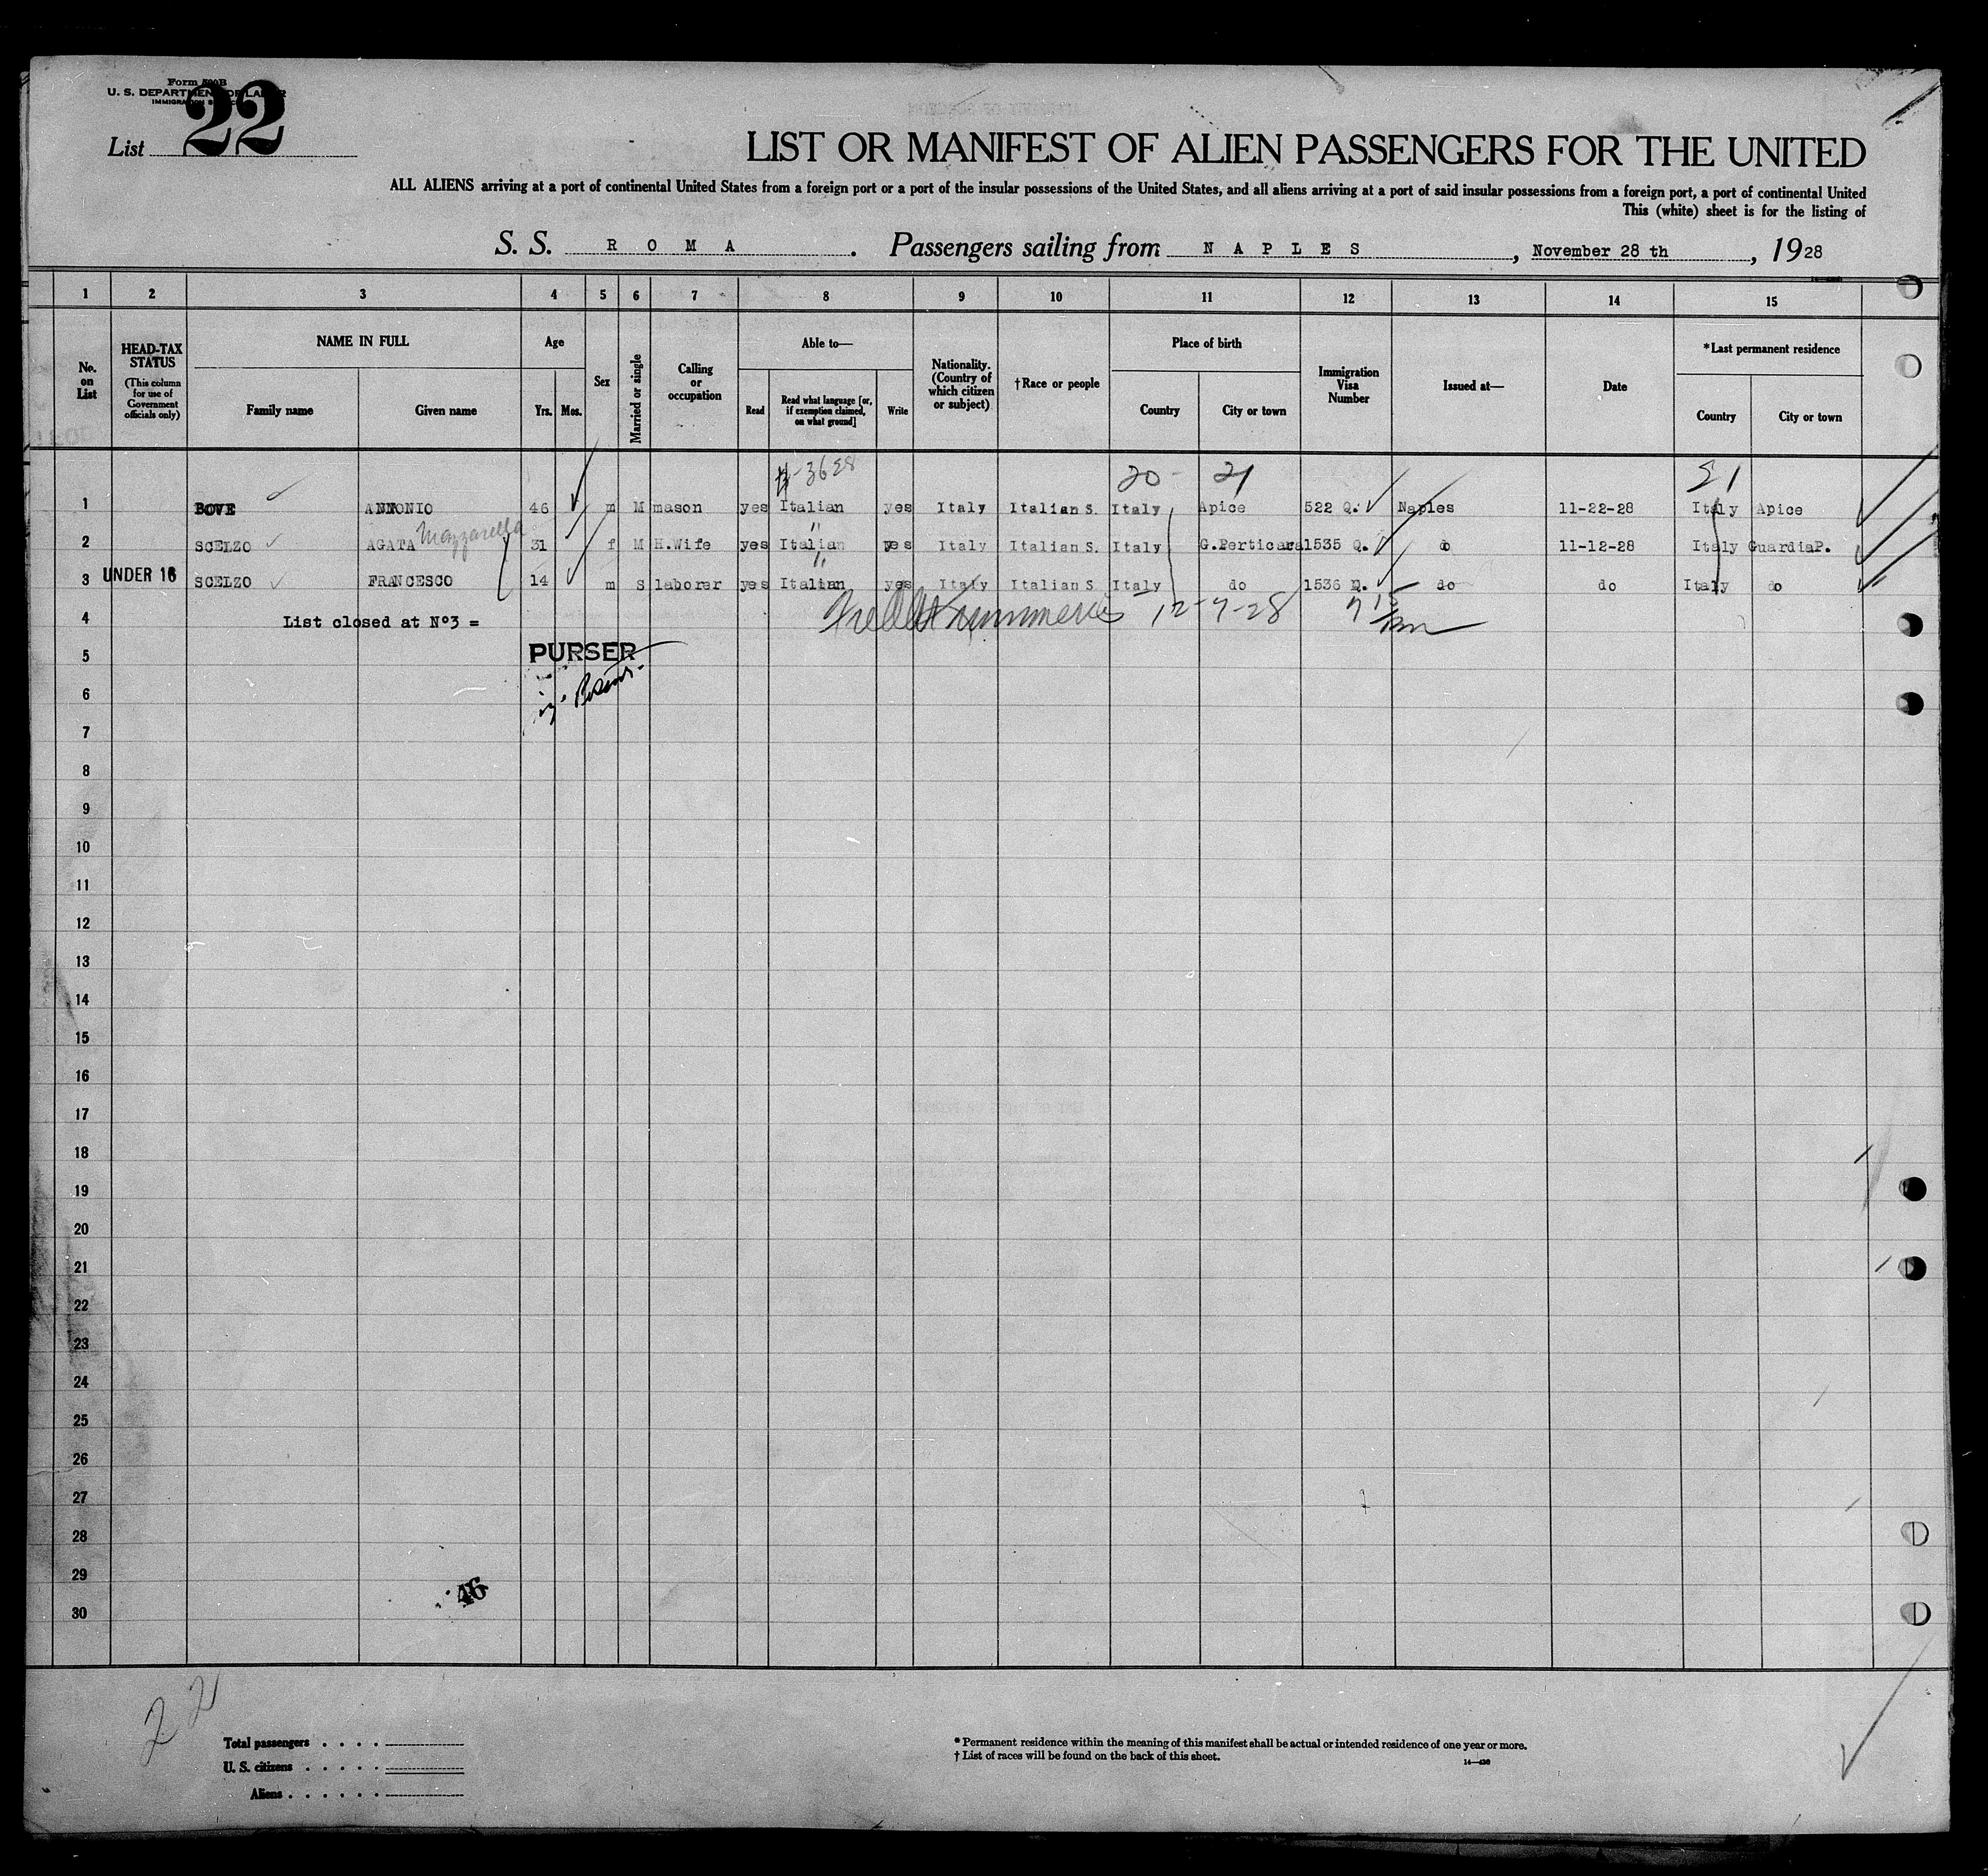 Form 500B
U. S. DEPARTMENT OF LABOR
IMMIGRATION SERVICE
List 22
LIST OR MANIFEST OF ALIEN PASSENGERS FOR THE UNITED
ALL ALIENS arriving at a port of continental United States from a foreign port or a port of the insular possessions of the United States, and all aliens arriving at a port of said insular possessions from a foreign port, a port of continental United
This (white) sheet is for the listing of
S. S. R O M A . Passengers sailing from N A P L E S , November 28 th , 1928
1 2 3 4 5 6 7 8 9 10 11 12 13 14 15
No. on List
HEAD-TAX STATUS (This column for use of Government officials only)
NAME IN FULL
Family name Given name
Age
Yrs. Mos.
Sex
Married or single
Calling or occupation
Able to—
Read
Read what language [or, if exemption claimed, on what ground]
Write
Nationality. (Country of which citizen or subject)
†Race or people
Place of birth
Country City or town
Immigration Visa Number
Issued at—
Date
*Last permanent residence
Country City or town
20 - 21 21
1 BOVE ANTONIO 46 m M mason yes Italian yes Italy Italian S. Italy Apice 522 Q. Naples 11-22-28 Italy Apice
2 SCELZO AGATA Mazzarella 31 f M H.Wife yes Italian yes Italy Italian S. Italy G.Perticara 1535 Q. do 11-12-28 Italy GuardiaP.
3 UNDER 16 SCELZO FRANCESCO 14 m S laborer yes Italian yes Italy Italian S. Italy do 1536 Q. do do Italy do
4 List closed at Nº3 = 12-7-28
5 PURSER
6
7
8
9
10
11
12
13
14
15
16
17
18
19
20
21
22
23
24
25
26
27
28
29 46
30
22
Total passengers . . . .
U. S. citizens . . . . .
Aliens . . . . . .
* Permanent residence within the meaning of this manifest shall be actual or intended residence of one year or more.
† List of races will be found on the back of this sheet.